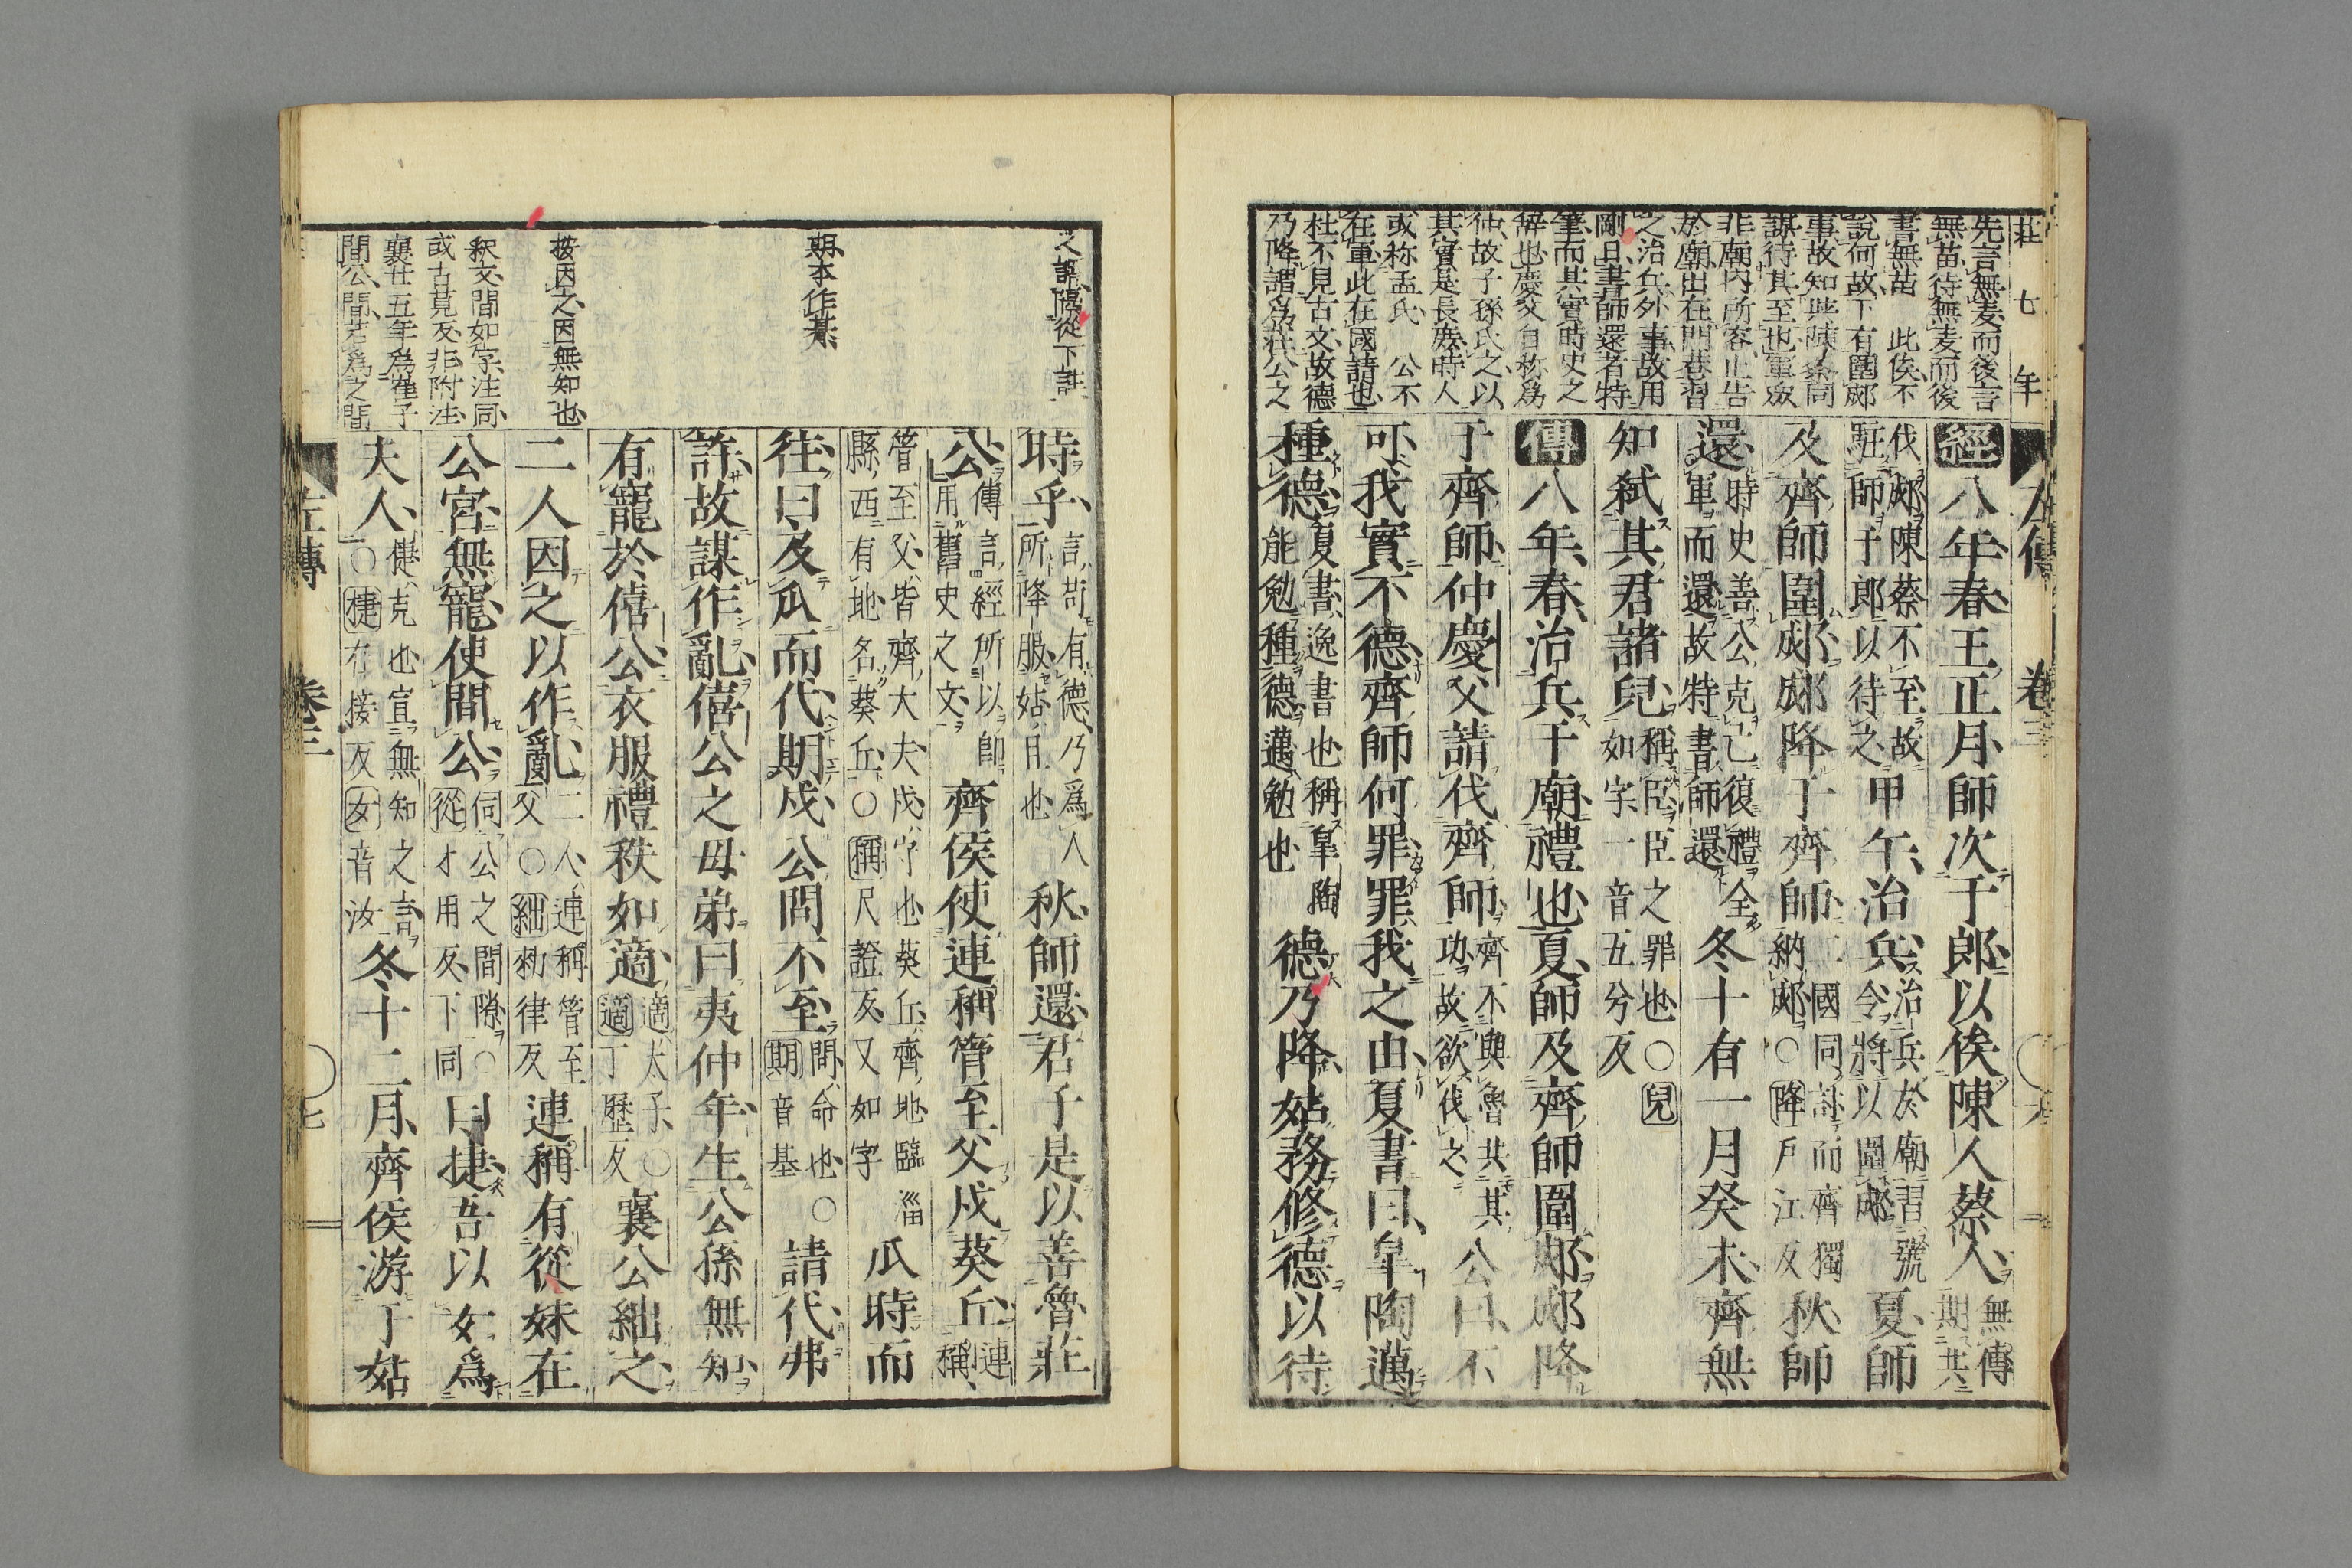 莊七年
左傳 卷三
先言無麦而後言
無苗待無麦而後
書無苗 此俟不
説何故下有圍郕
事故知與陳蔡同
謀待其至也軍
非廟内所容止告
於廟出在門巷習
之治兵外事故用
剛日書師還者特
筆而其實時史之
辞也慶父自称爲
仲故子孫氏之以
其實是長庶時人
或称孟氏 公不
在軍此在國請也
杜不見古文故德
乃降謂爲莊公之
經八年春王正月師次于郎以俟陳人蔡人無傳期共
伐郕陳蔡不至故駐師于郎以待之甲午治兵治兵於廟習號令將以圍郕夏師
及齊師圍郕郕降于齊師二國同討而齊獨納郕○降戸江反秋師
還時史善公克己復禮全軍而還故特書師還冬十有一月癸未齊無
知弑其君諸兒稱臣臣之罪也○兒如字一音五兮反
傳八年春治兵于廟禮也夏師及齊師圍郕郕降
于齊師仲慶父請伐齊師齊不與魯共其功故欲伐之公曰不
可我實不德齊師何罪罪我之由夏書曰皐陶邁
種德夏書逸書也稱皐陶能勉種德邁勉也德乃降姑務修德以待
之謂傷從下註
期本作朞
按因之因無知也
釈文間如字注同
或古莧反非附注
襄廿五年爲崔子
間公間若爲之間
時乎言苟有德乃爲人所降服姑且也秋師還君子是以善魯莊
公傳言經所以即用舊史之文齊侯使連稱管至父戍葵丘連稱
管至父皆齊大夫戍守也葵丘齊地臨淄縣西有地名葵丘○稱尺證反又如字瓜時而
往曰及瓜而代期戍公問不至問命也○期音基請代弗
許故謀作亂僖公之母弟曰夷仲年生公孫無知
有寵於僖公衣服禮秩如適適太子○適丁歷反襄公絀之
二人因之以作亂二人連稱管至父○絀勑律反連稱有從妹在
公宮無寵使間公伺公之間隙○從才用反下同曰捷吾以女爲
夫人捷克也宣無知之言○捷在接反女音汝冬十二月齊侯游于姑
左傳 卷三 七